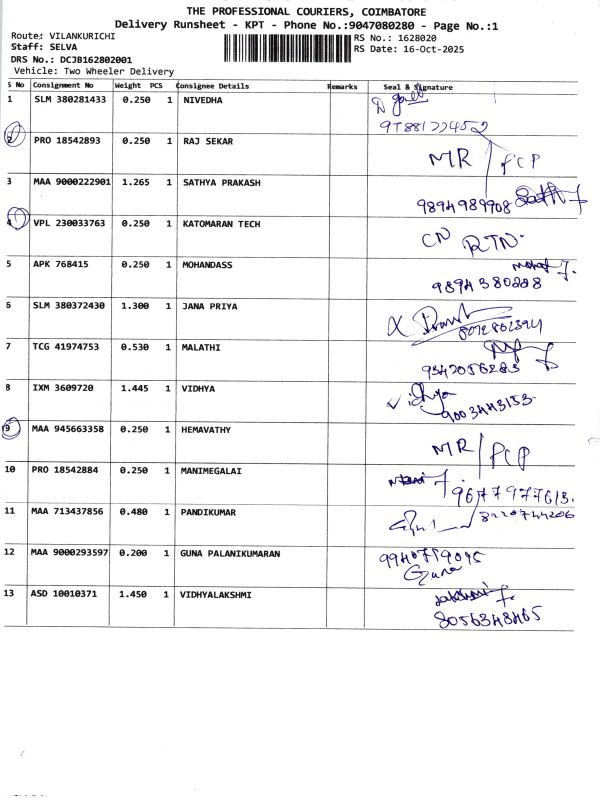 THE PROFESSIONAL COURIERS, COIMBATORE
Delivery Runsheet - KPT - Phone No.:9047080280 - Page No.:1
Route: VILANKURICHI RS No.: 1628020
Staff: SELVA RS Date: 16-Oct-2025
DRS No.: DCJB162802001
Vehicle: Two Wheeler Delivery
S No Consignment No Weight PCS Consignee Details Remarks Seal & Signature
1 SLM 380281433 0.250 1 NIVEDHA
2 PRO 18542893 0.250 1 RAJ SEKAR MR / PCP
3 MAA 9000222901 1.265 1 SATHYA PRAKASH 9894989908
4 VPL 230033763 0.250 1 KATOMARAN TECH CN RTN.
5 APK 768415 0.250 1 MOHANDASS
9894380288
6 SLM 380372430 1.300 1 JANA PRIYA
7 TCG 41974753 0.530 1 MALATHI
9342056283
8 IXM 3609720 1.445 1 VIDHYA Vidhya
9003443153
9 MAA 945663358 0.250 1 HEMAVATHY MR / PCP
10 PRO 18542884 0.250 1 MANIMEGALAI
9677977613.
11 MAA 713437856 0.480 1 PANDIKUMAR 8220744206
12 MAA 9000293597 0.200 1 GUNA PALANIKUMARAN 9940719095
Guna
13 ASD 10010371 1.450 1 VIDHYALAKSHMI
8056348465